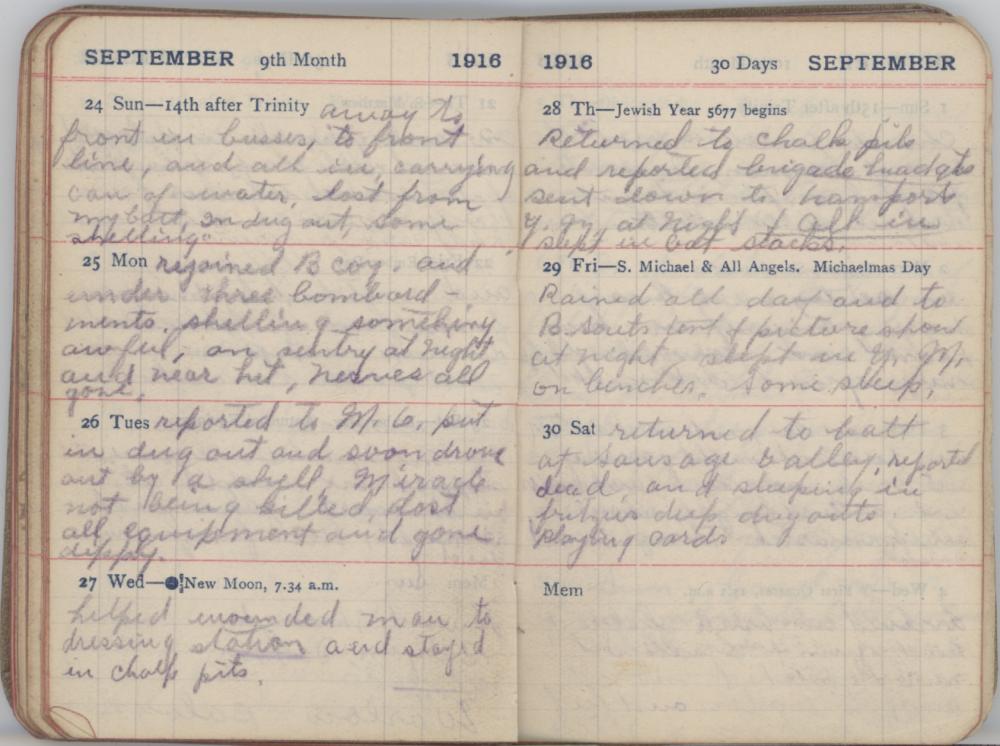 SEPTEMBER 9th Month 1916
24 Sun—14th after Trinity away to
front in busses, to front
line, and all in, carrying
can of water, lost from
my batt, in dug out, some
shelling.
25 Mon rejoined B coy. and
under three bombard-
ments. shelling something
awful, on sentry at night
and near hit, nerves all
gone.
26 Tues reported to M.O. put
in dug out and soon drove
out by a shell, Miracle
not being killed, lost
all, equipment and gone
dippy.
27 Wed—New Moon, 7.34 a.m.
helped wounded man to
dressing station and stayed
in chalk pits.
1916 30 Days SEPTEMBER
28 Th—Jewish Year 5677 begins
Returned to chalk pits
and reported brigade headqts
sent down to transport
Y. M. at night & all in
slept in oat stacks.
29 Fri—S. Michael & All Angels. Michaelmas Day
Rained all day and to
tent & picture show
at night slept in Y. M.
on benches. Some sleep.
30 Sat returned to batt
at sausage valley, reported
dead, and sleeping in
deep dugouts
playing cards
Mem